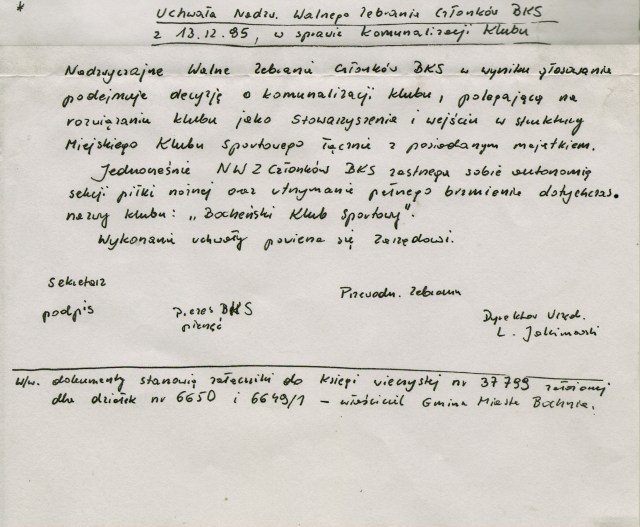 * Uchwała Nadzw. Walnego Zebrania Członków BKS
z 13.12.95, w sprawie komunalizacji klubu
Nadzwyczajne Walne Zebranie Członków BKS w wyniku głosowania
podejmuje decyzję o komunalizacji klubu, polegającą na
rozwiązaniu klubu jako Stowarzyszenie i wejściu w struktury
Miejskiego Klubu Sportowego łącznie z posiadanym majątkiem.
Jednocześnie NWZ Członków BKS zastrzega sobie autonomię
sekcji piłki nożnej oraz utrzymanie pełnego brzmienia dotychczas.
nazwy klubu: „Bocheński Klub Sportowy".
Wykonanie uchwały powierza się Zarządowi.
Sekretarz
podpis
Prezes BKS
pieczęć
Przewodn. Zebrania
Dyrektor Urzęd.
L. Jakimowski
W/w. dokumenty stanowią załączniki do księgi wieczystej nr 37799 założonej
dla działek nr 6650 i 6649/1 – właściciel Gmina Miasta Bochnia.